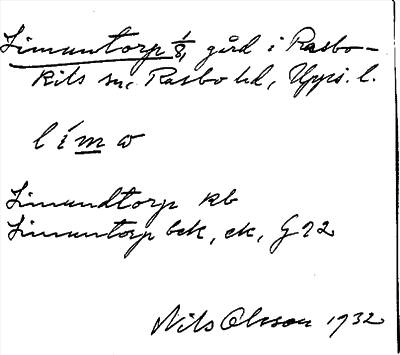 Simuntorp 1/8, gård i Rasbo-
kils sn, Rasbo hd, Upps. l.
Simundtorp kb
Simuntorp bek, ek, G 22
Nils Olsson 1932